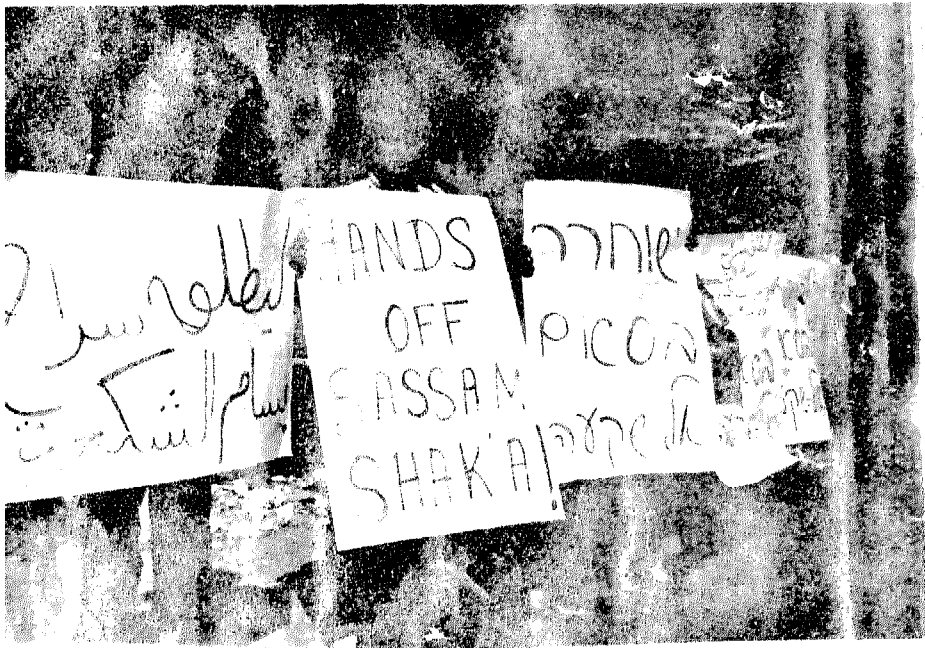 ليطلق سراح
بسام الشكعة
HANDS
OFF
BASSAM
SHAK'A!
ישוחרר
בסאם
אל שקעה